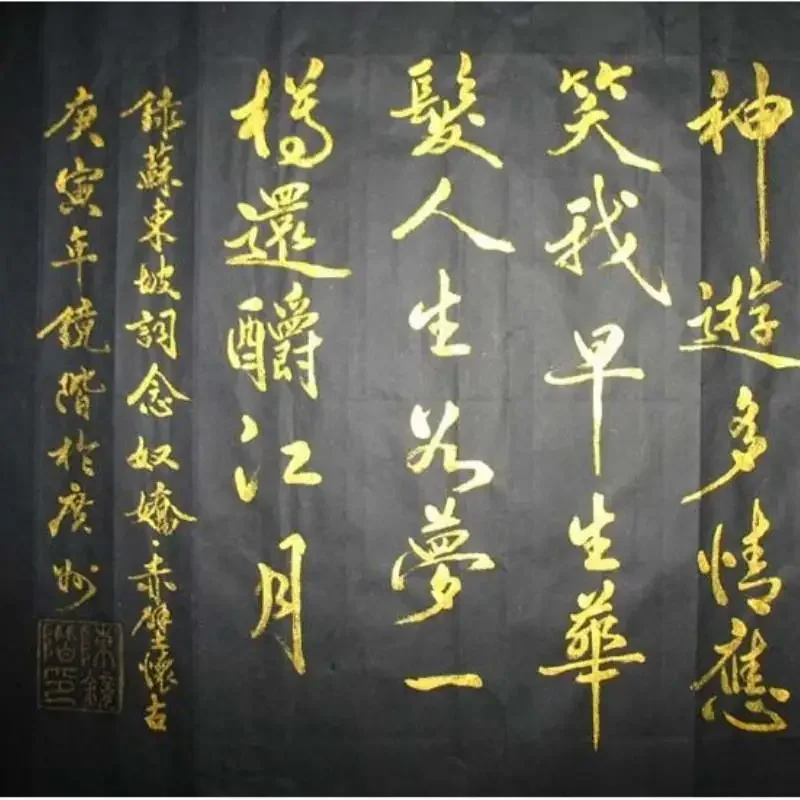 神遊多情應
笑我早生華
髮人生如夢一
樽還釂江月
錄蘇東坡詞念奴嬌·赤壁懷古
庚寅年鏡階於廣州
陳鏡階印